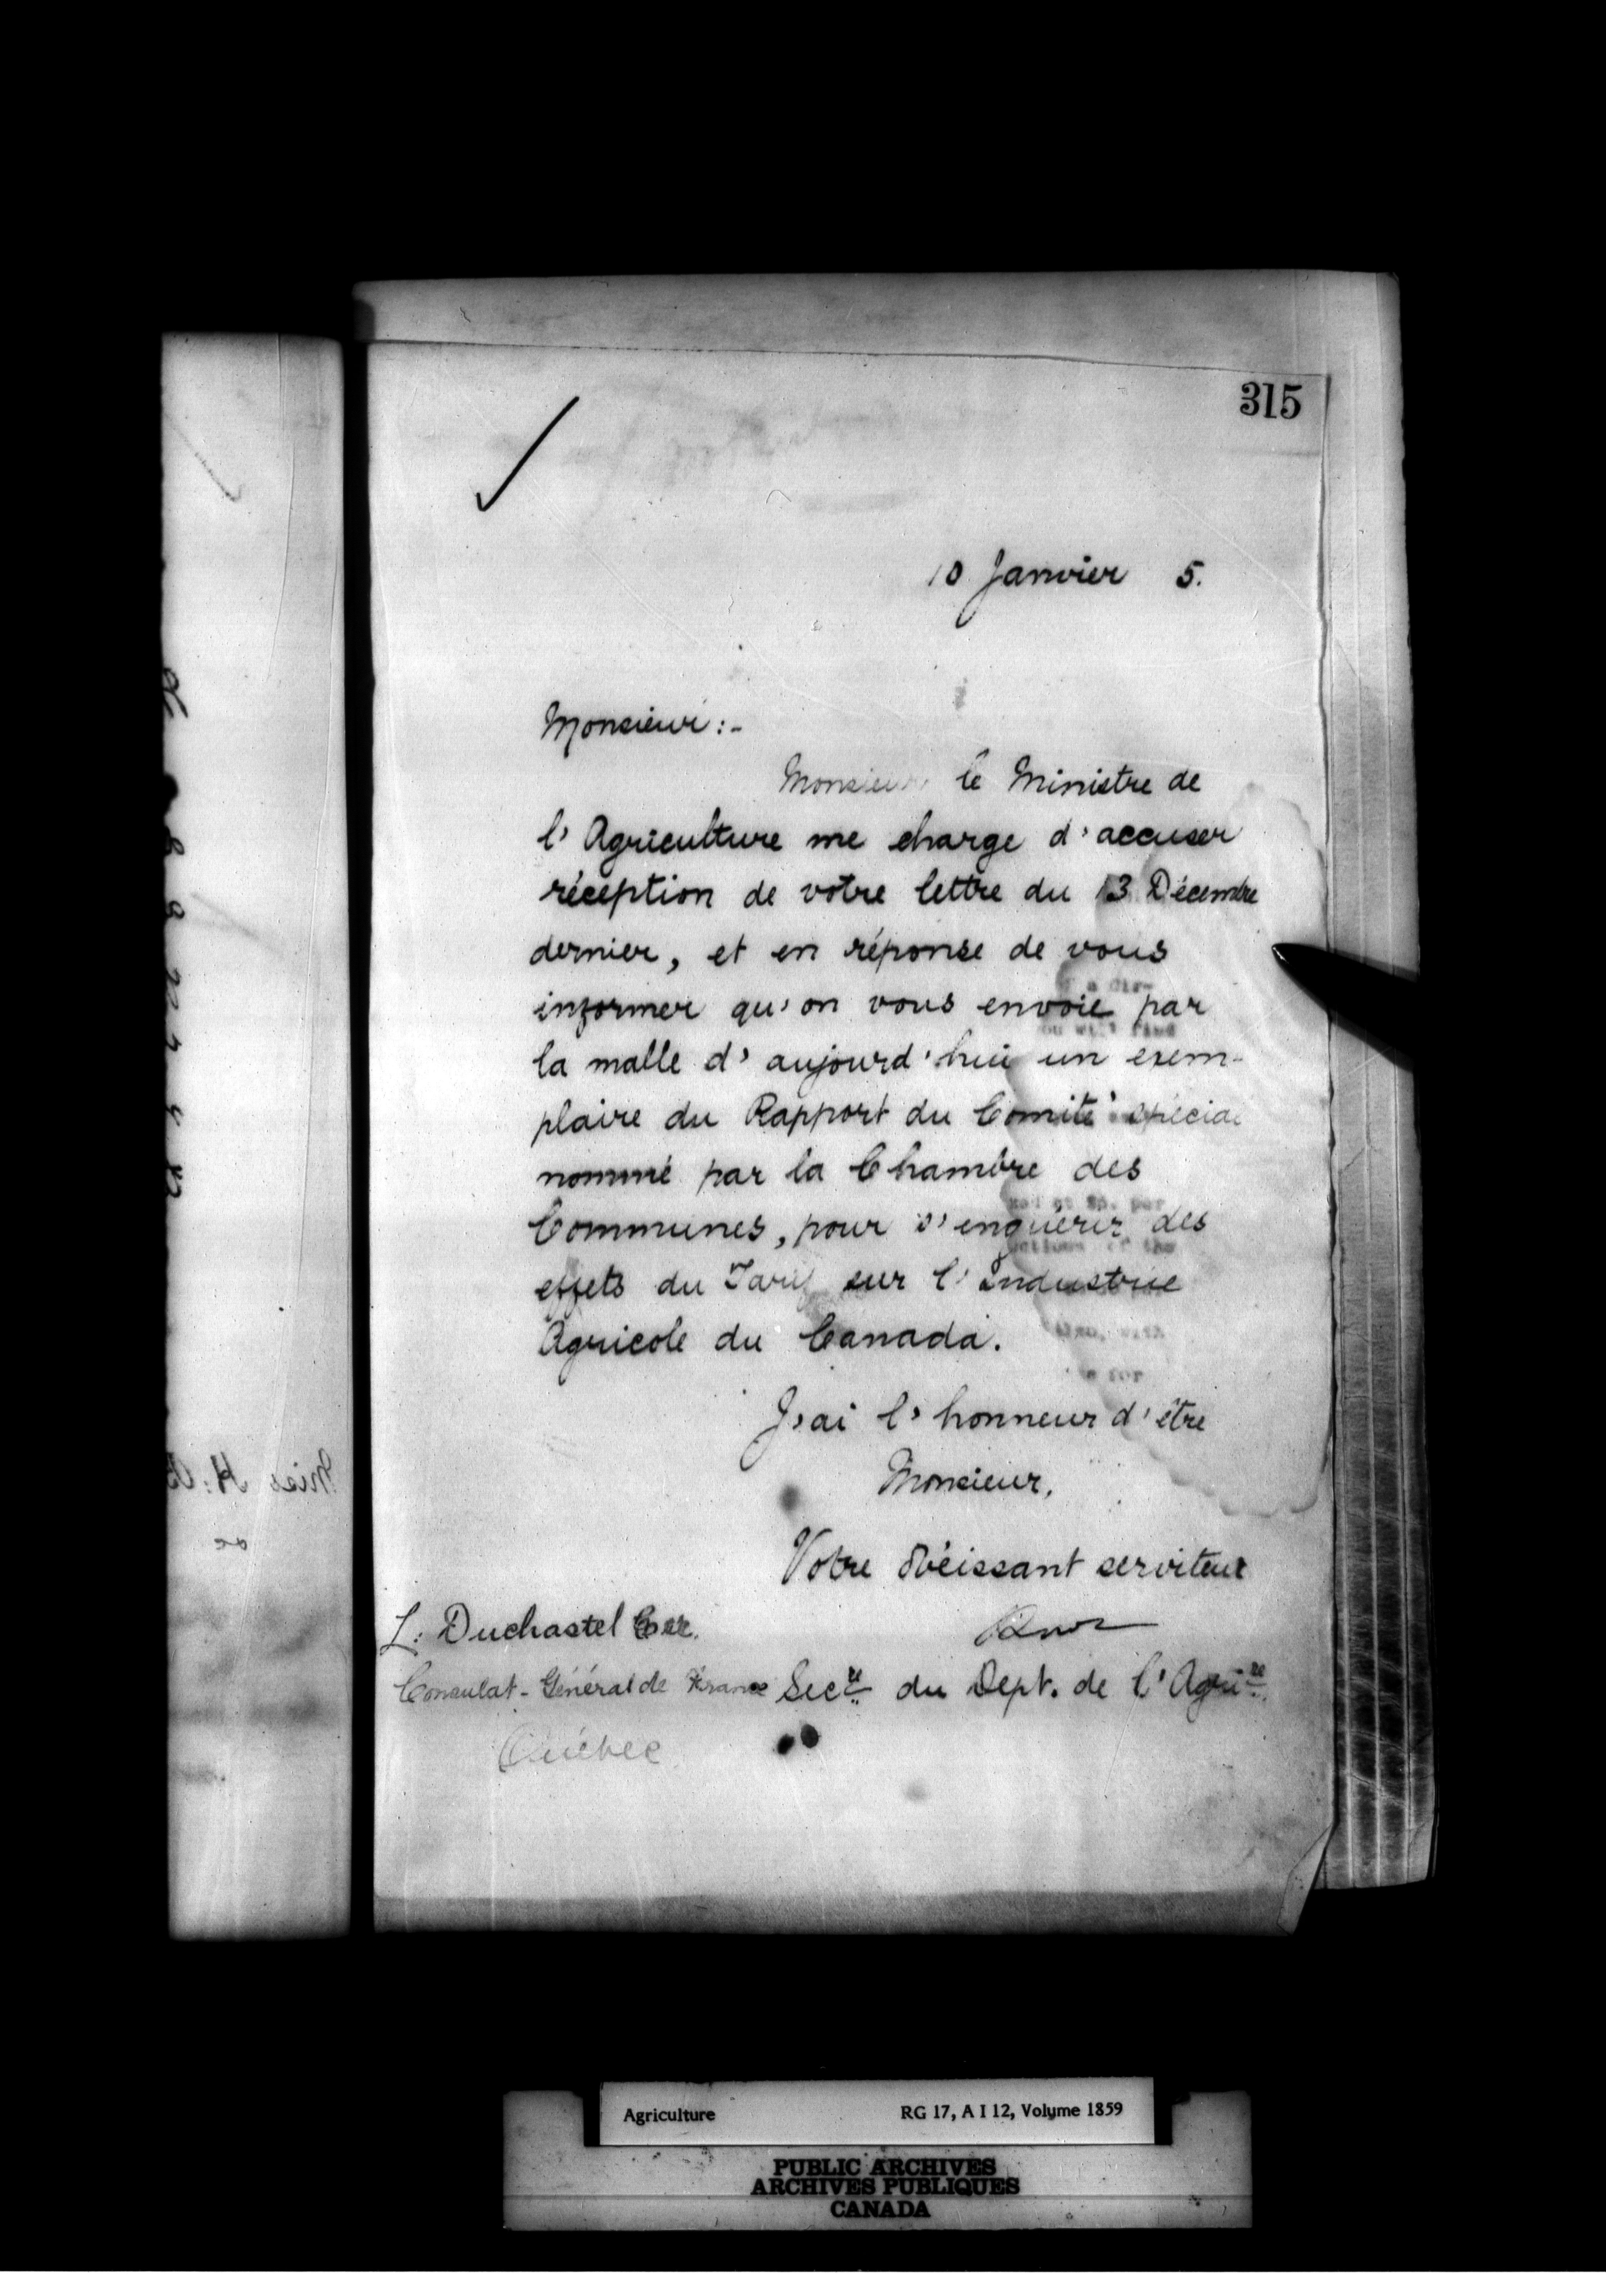 315
10 Janvier 5.
Monsieur:-
Monsieur le Ministre de
l'Agriculture me charge d'accuser
réception de votre lettre du 13 Décembre
dernier, et en réponse de vous
informer qu'on vous envoie par
la malle d'aujourd'hui un exem-
plaire du Rapport du Comité spécial
nommé par la Chambre des
Communes, pour s'enquérir des
effets du Tarif sur l'industrie
Agricole du Canada.
J'ai l'honneur d'être
Monsieur,
Votre obéissant serviteur
L: Duchastel Ecr.
Consulat-Général de France Secre du Dept. de l'Agrire.
Québec
Agriculture RG 17, A I 12, Volume 1859
PUBLIC ARCHIVES
ARCHIVES PUBLIQUES
CANADA